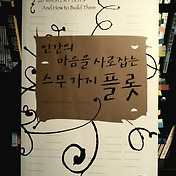 20 MASTER PLOTS
And How to Build Them
인간의
마음을 사로잡는
스무 가지 플롯